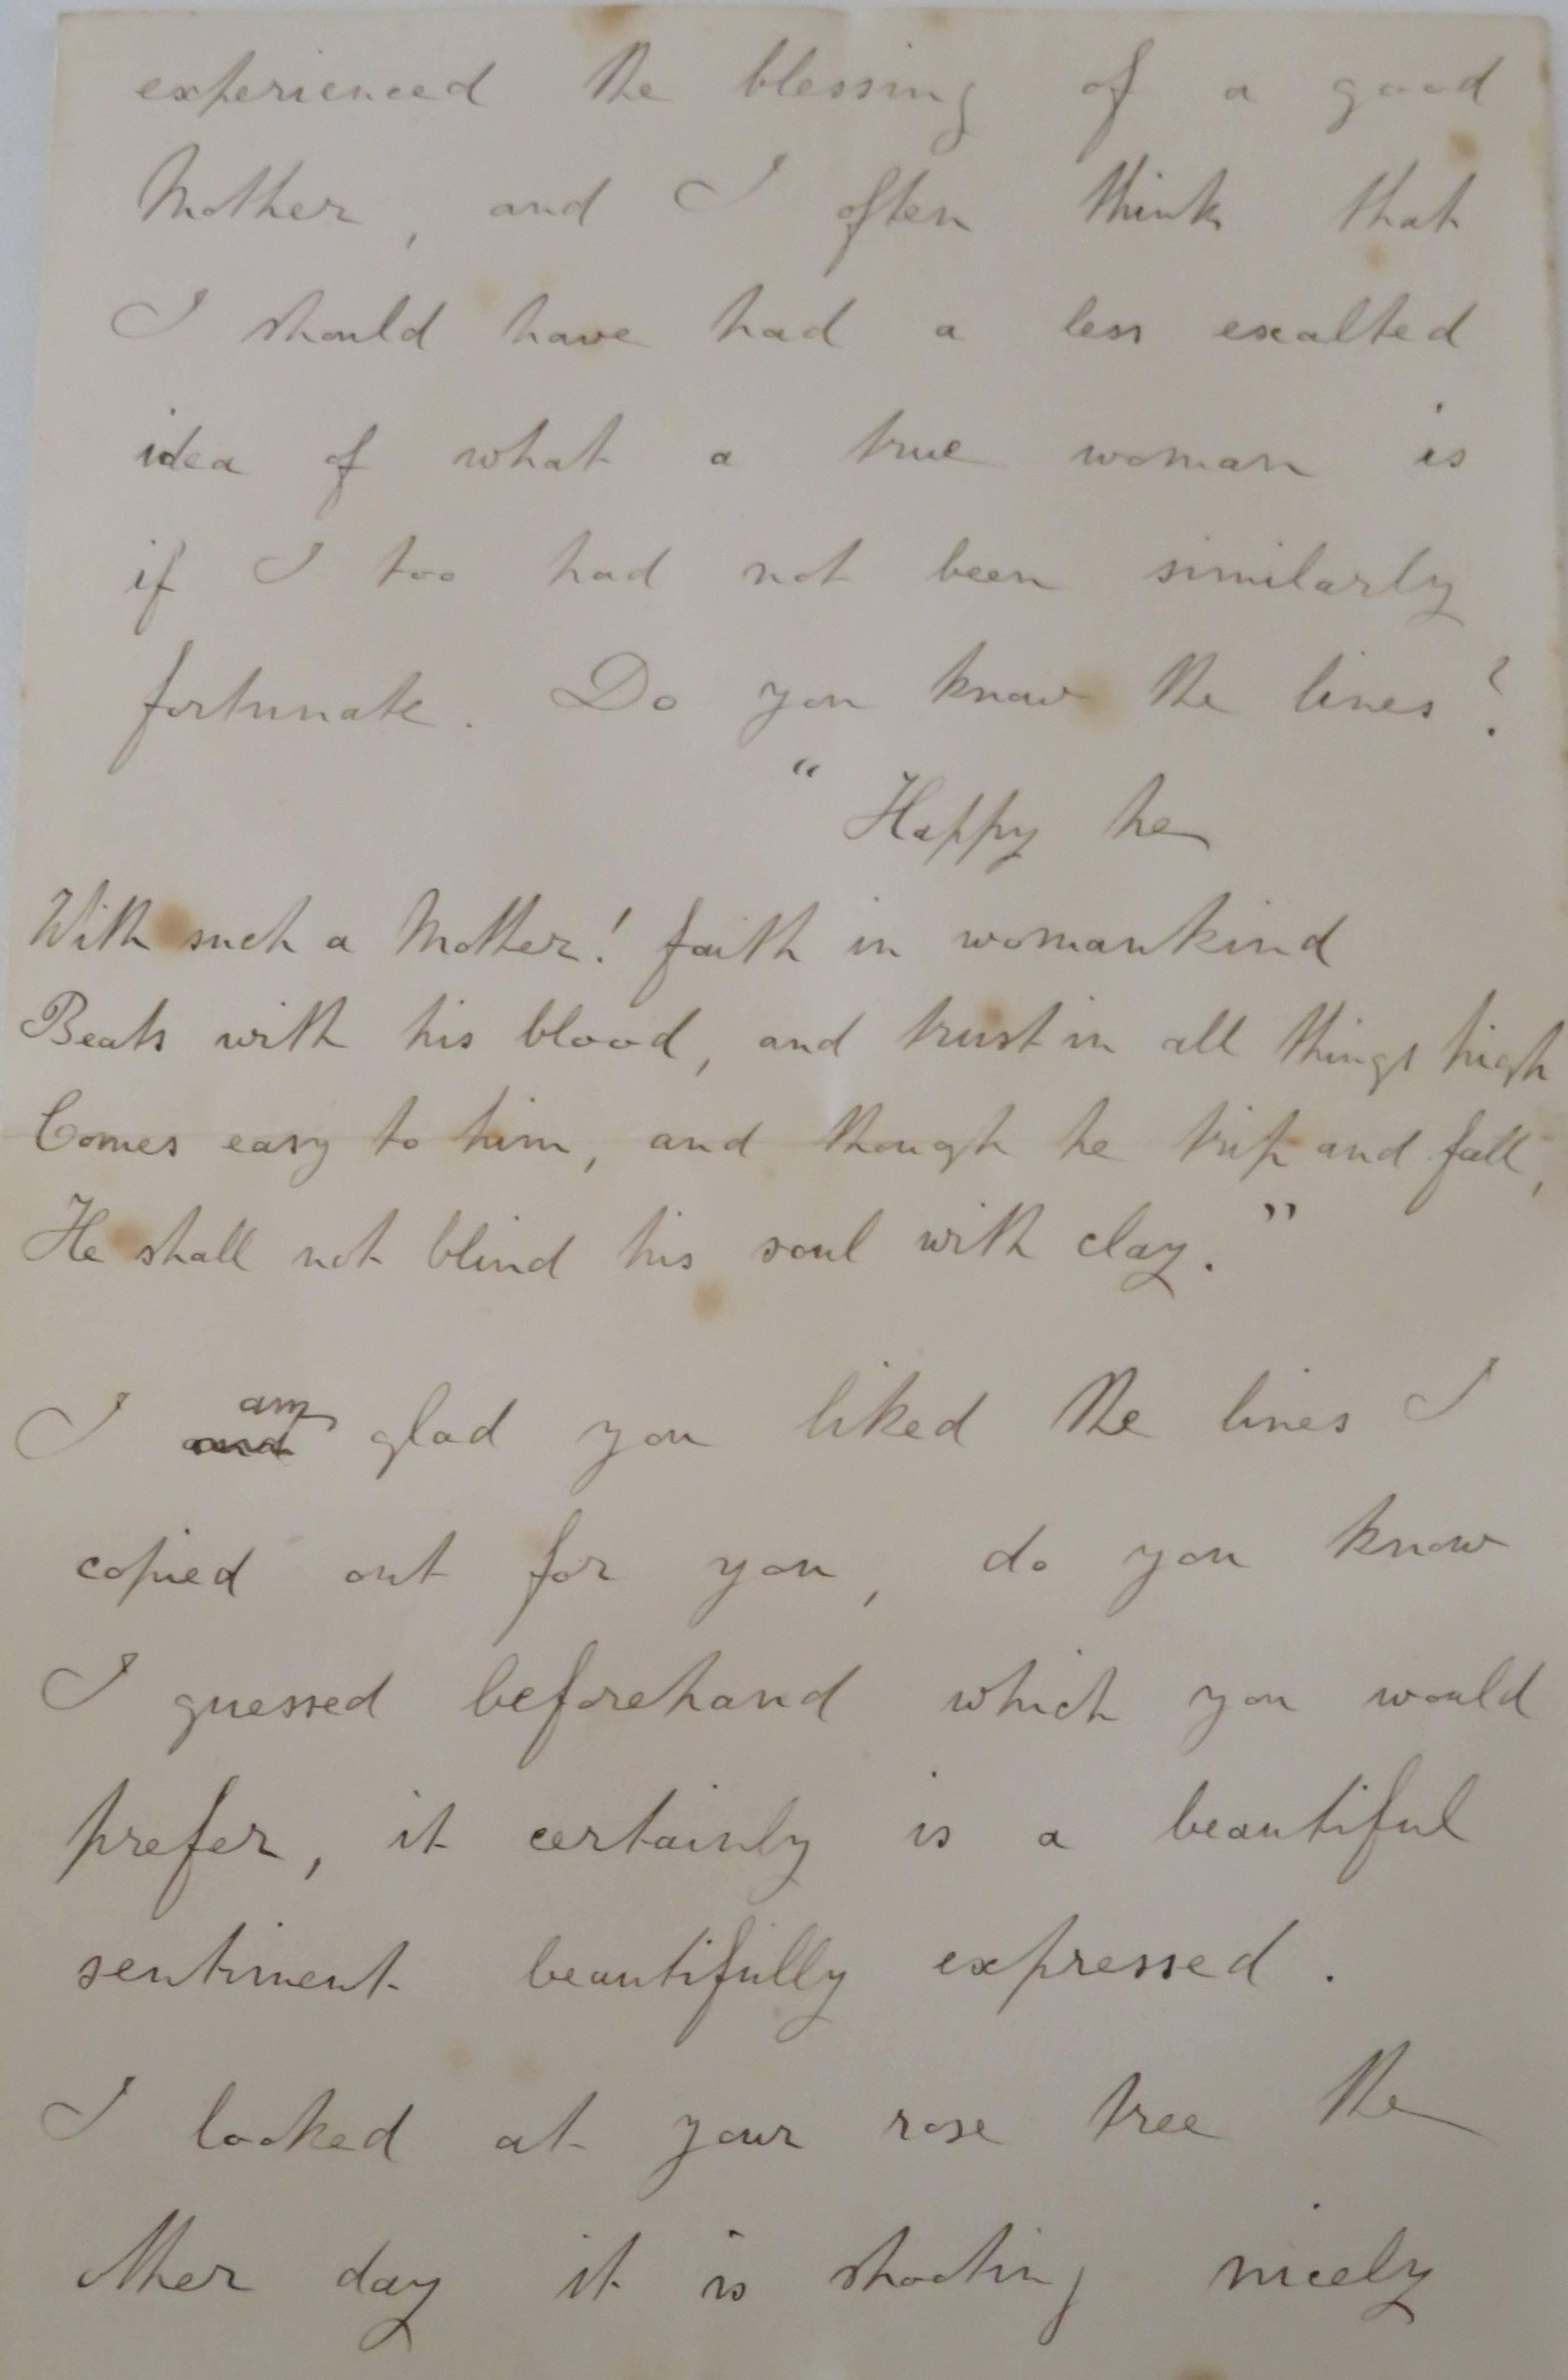 experienced the blessing of a good
Mother, and I often think that
I should have had a less exalted
idea of what a true woman is
if I too had not been similarly
fortunate. Do you know the lines?
“ Happy he
With such a Mother! faith in womankind
Beats with his blood, and trust in all things high
Comes easy to him, and though he trip and fall,
He shall not blind his soul with clay.”
I and am glad you liked the lines I
copied out for you, do you know
I guessed beforehand which you would
prefer, it certainly is a beautiful
sentiment beautifully expressed.
I looked at your rose tree the
other day it is shooting nicely